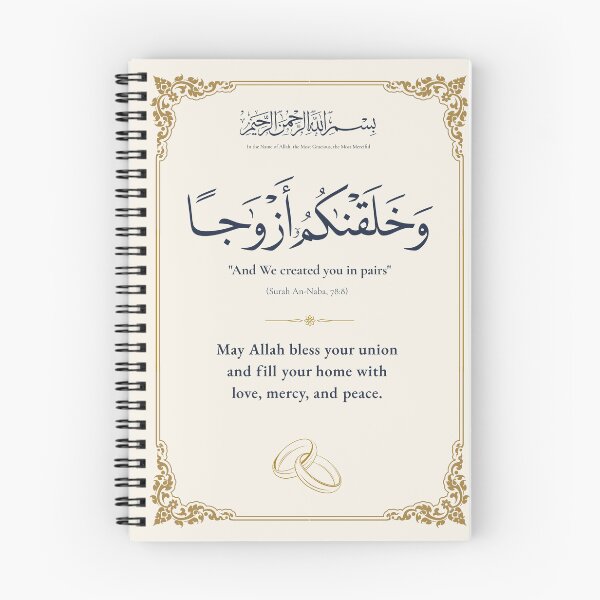 بسم الله الرحمن الرحيم
In the Name of Allah, the Most Gracious, the Most Merciful
وَخَلَقْنَٰكُمْ أَزْوَٰجًا
"And We created you in pairs"
(Surah An-Naba, 78:8)
May Allah bless your union
and fill your home with
love, mercy, and peace.